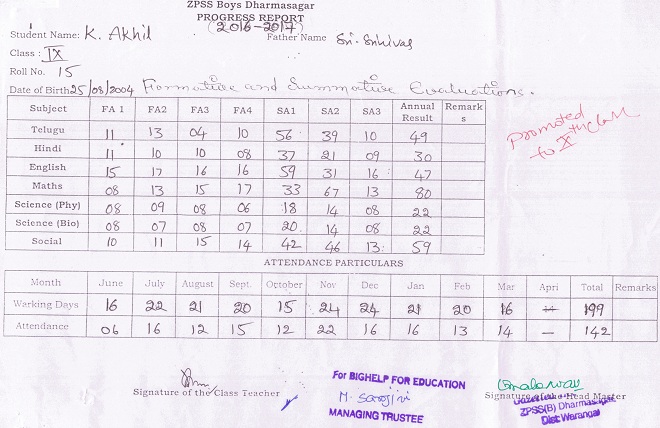 ZPSS Boys Dharmasagar
PROGRESS REPORT
(2016-2017)
Student Name: K. Akhil Father Name Sri. Srinivas
Class : IX
Roll No. 15
Date of Birth 25/08/2004 Formative and Summative Evaluations.
Subject FA 1 FA2 FA3 FA4 SA1 SA2 SA3 Annual Result Remarks
Telugu 11 13 04 10 56 39 10 49
Hindi 11 10 10 08 37 21 09 30
English 15 17 16 16 59 31 16 47
Maths 08 13 15 17 33 67 13 80
Science (Phy) 08 09 08 06 18 14 08 22
Science (Bio) 08 07 08 07 20 14 08 22
Social 10 11 15 14 42 46 13 59
Promoted
to X th class
ATTENDANCE PARTICULARS
Month June July August Sept. October Nov Dec Jan Feb Mar Apri Total Remarks
Working Days 16 22 21 20 15 24 24 21 20 16 199
Attendance 06 16 12 15 12 22 16 16 13 14 — 142
Signature of the Class Teacher
For BIGHELP FOR EDUCATION
M. Sarojini
MANAGING TRUSTEE
Signature of the Head Master
ZPSS(B) Dharmasagar
Dist Warangal